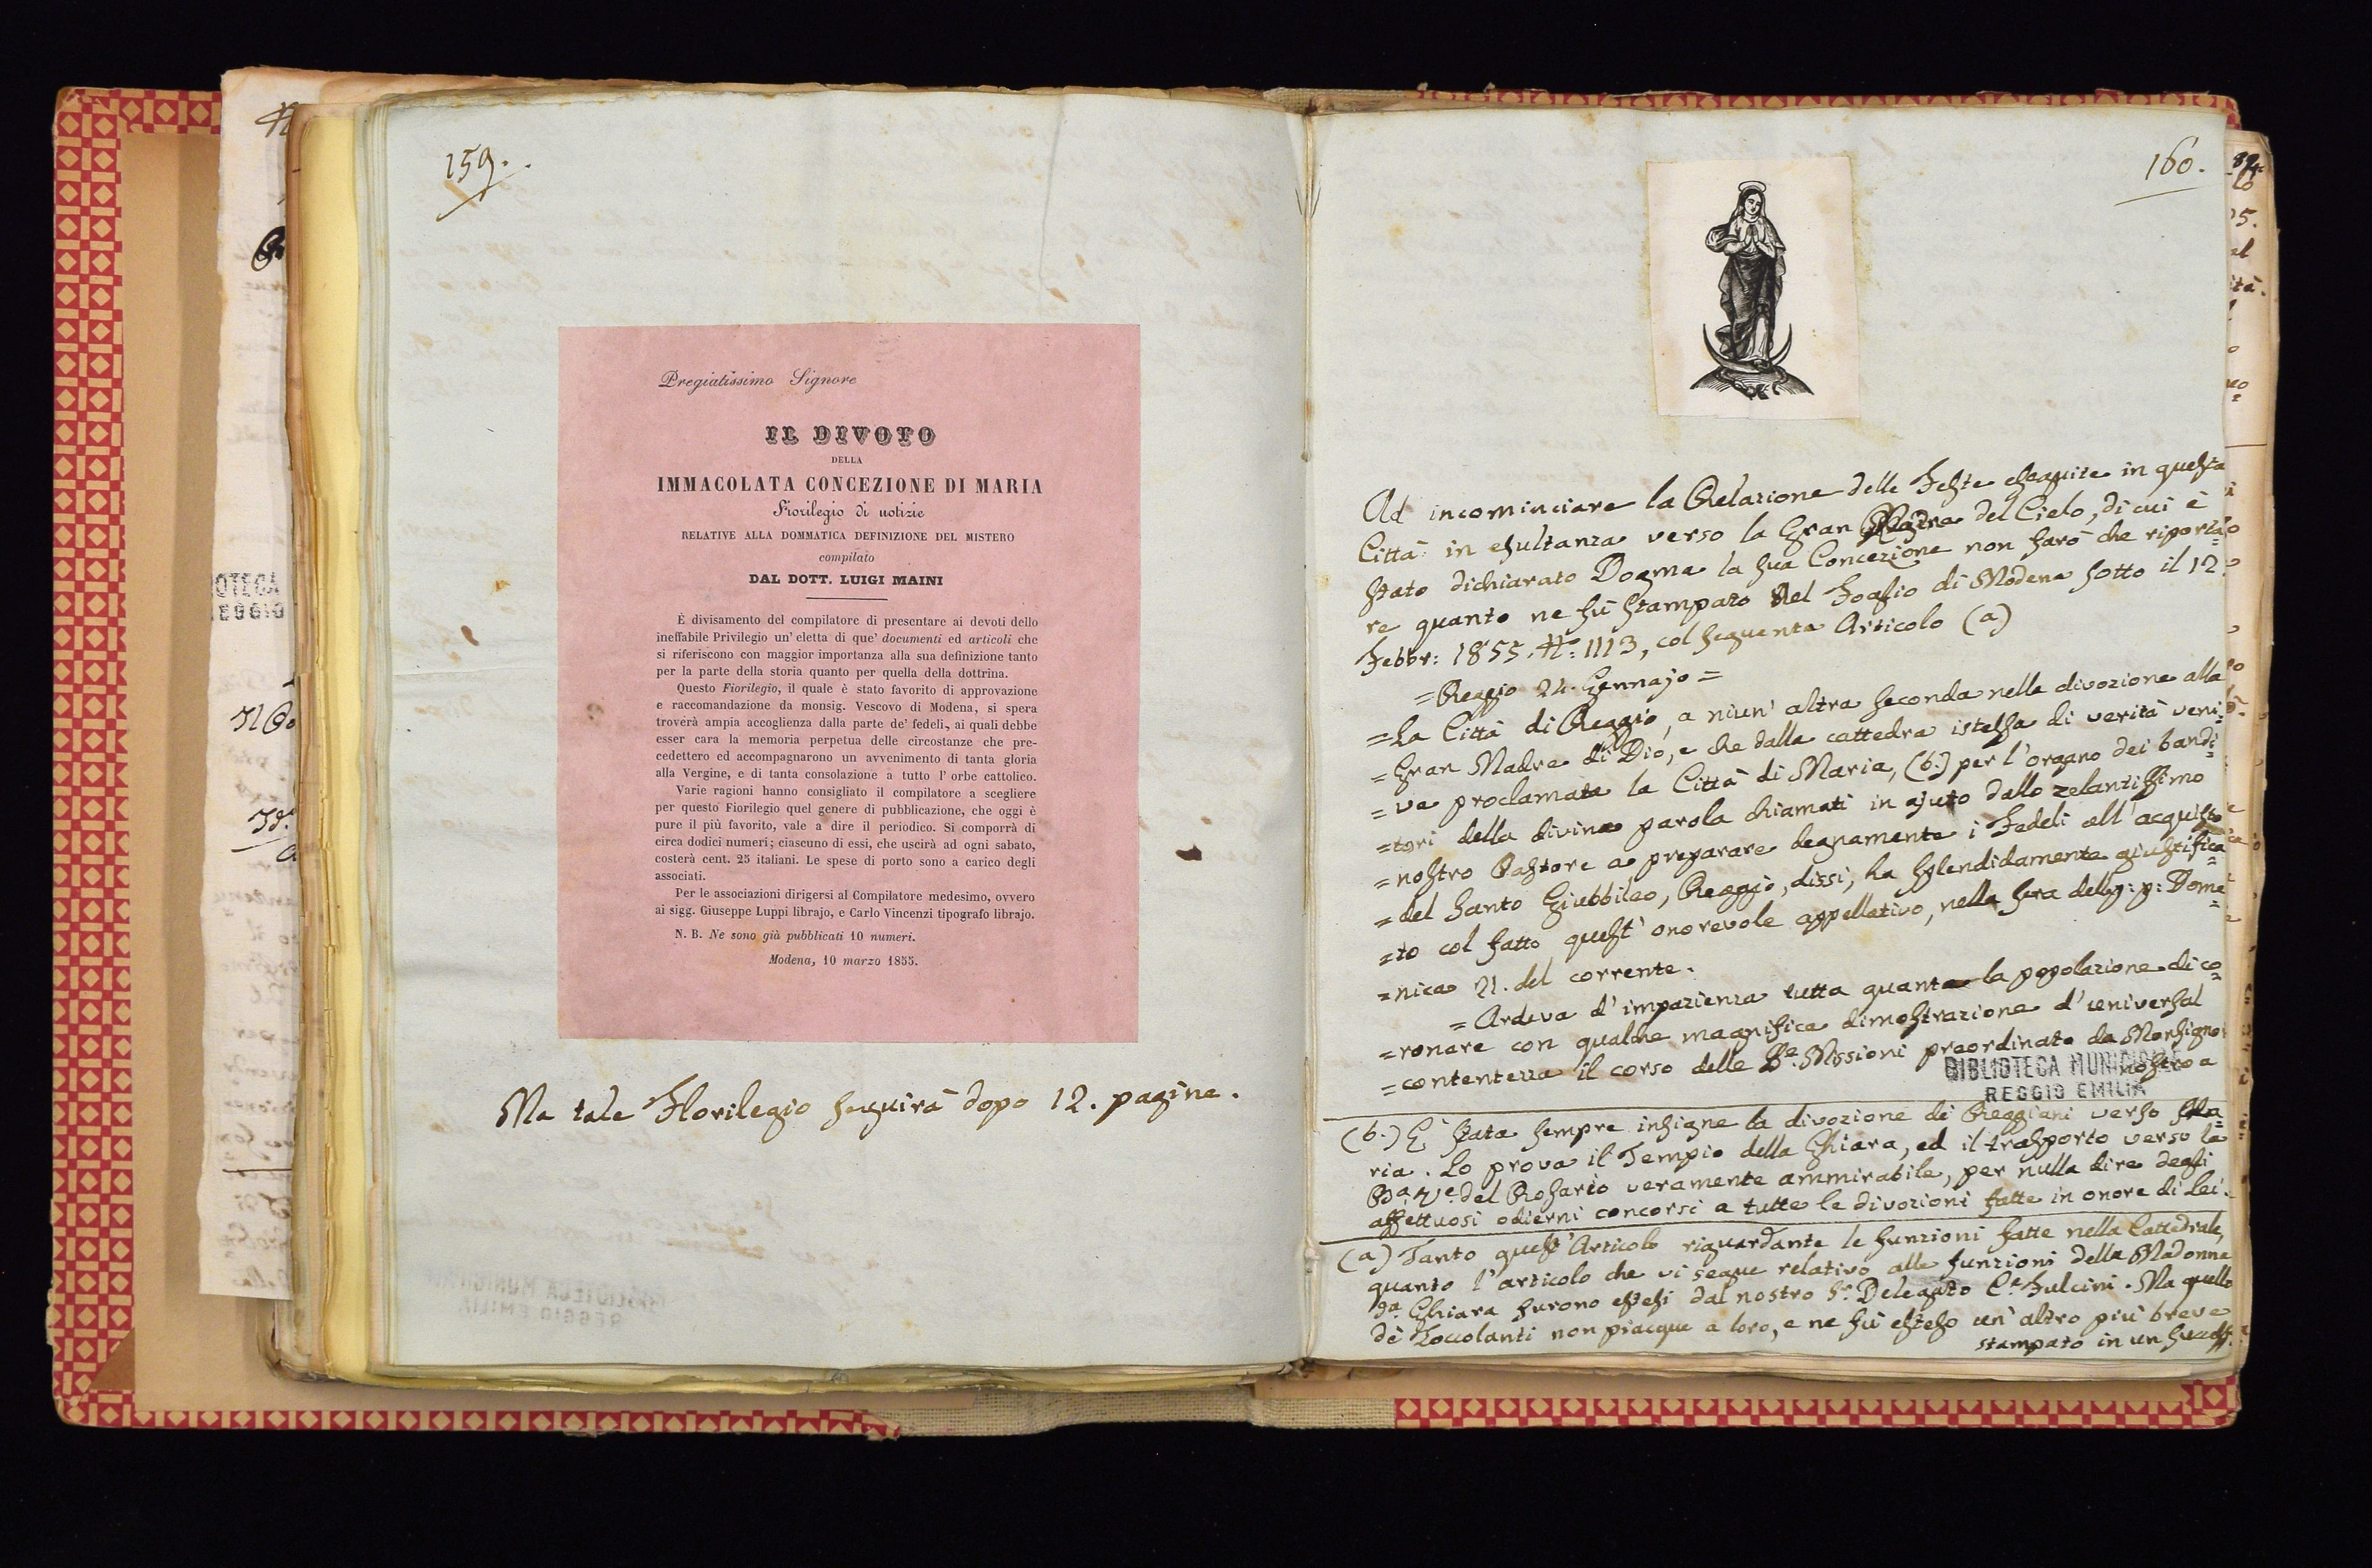 159.
Pregiatissimo Signore
IL DIVOTO
DELLA
IMMACOLATA CONCEZIONE DI MARIA
Fiorilegio di notizie
RELATIVE ALLA DOMMATICA DEFINIZIONE DEL MISTERO
compilato
DAL DOTT. LUIGI MAINI
È divisamento del compilatore di presentare ai devoti dello
ineffabile Privilegio un' eletta di que' documenti ed articoli che
si riferiscono con maggior importanza alla sua definizione tanto
per la parte della storia quanto per quella della dottrina.
Questo Fiorilegio, il quale è stato favorito di approvazione
e raccomandazione da monsig. Vescovo di Modena, si spera
troverà ampia accoglienza dalla parte de' fedeli, ai quali debbe
esser cara la memoria perpetua delle circostanze che pre-
cedettero ed accompagnarono un avvenimento di tanta gloria
alla Vergine, e di tanta consolazione a tutto l' orbe cattolico.
Varie ragioni hanno consigliato il compilatore a scegliere
per questo Fiorilegio quel genere di pubblicazione, che oggi è
pure il più favorito, vale a dire il periodico. Si comporrà di
circa dodici numeri; ciascuno di essi, che uscirà ad ogni sabato,
costerà cent. 25 italiani. Le spese di porto sono a carico degli
associati.
Per le associazioni dirigersi al Compilatore medesimo, ovvero
ai sigg. Giuseppe Luppi librajo, e Carlo Vincenzi tipografo librajo.
N. B. Ne sono già pubblicati 10 numeri.
Modena, 10 marzo 1855.
Ma tale Florilegio seguirà dopo 12. pagine.
160.
Ad incominciare la Relazione delle Feste eseguite in questa
Città in esultanza verso la Gran Madre del Cielo, di cui è
stato dichiarato Dogma la sua Concezione non farò che riporta=
re quanto ne fù stampato nel Foglio di Modena sotto il 12.
Febbr: 1855. N.º 1113, col seguente Articolo (a)
= Reggio 24. Gennajo =
= La Città di Reggio, a niun' altra seconda nella divozione alla
= Gran Madre di Dio, e che dalla cattedra istessa di verità veni=
= va proclamata la Città di Maria, (b.) per l'organo dei bandi=
= tori della divina parola chiamati in ajuto dallo zelantissimo
= nostro Pastore a preparare degnamente i Fedeli all' acquisto
= del Santo Giubbileo, Reggio, dissi, ha splendidamente giustifica=
= to col fatto quest' onorevole appellativo, nella sera della p: p: Dome=
= nica 21. del corrente.
= Ardeva d' impazienza tutta quanta la popolazione di co=
= ronare con qualche magnifica dimostrazione d' universal
= contentezza il corso delle Se. Missioni preordinate da Monsignor
nostro a
BIBLIOTECA MUNICIPALE
REGGIO EMILIA
(b.) E' stata sempre insigne la divozione dei Reggiani verso Ma=
ria. Lo prova il Tempio della Ghiara, ed il trasporto verso la
Ba. Ve. del Rosario veramente ammirabile, per nulla dire degli
affettuosi odierni concorsi a tutte le divozioni fatte in onore di Lei.
(a) Tanto quest' Articolo riguardante le funzioni fatte nella Cattedrale,
quanto l' articolo che vi segue relativo alle funzioni della Madonna
da. Ghiara furono estesi dal nostro Sr. Delegato Ce. Fulcini. Ma quello
de' Zoccolanti non piacque a loro, e ne fù esteso un' altro più breve
stampato in un